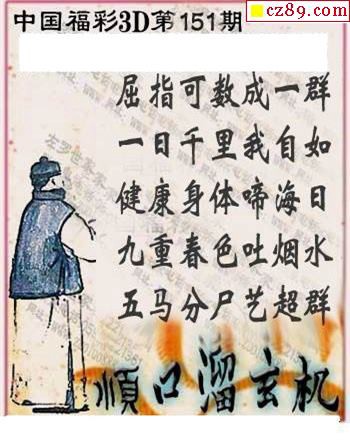 cz89.com
中国福彩3D第151期
屈指可数成一群
一日千里我自如
健康身体啼海日
九重春色吐烟水
五马分尸艺超群
顺口溜玄机